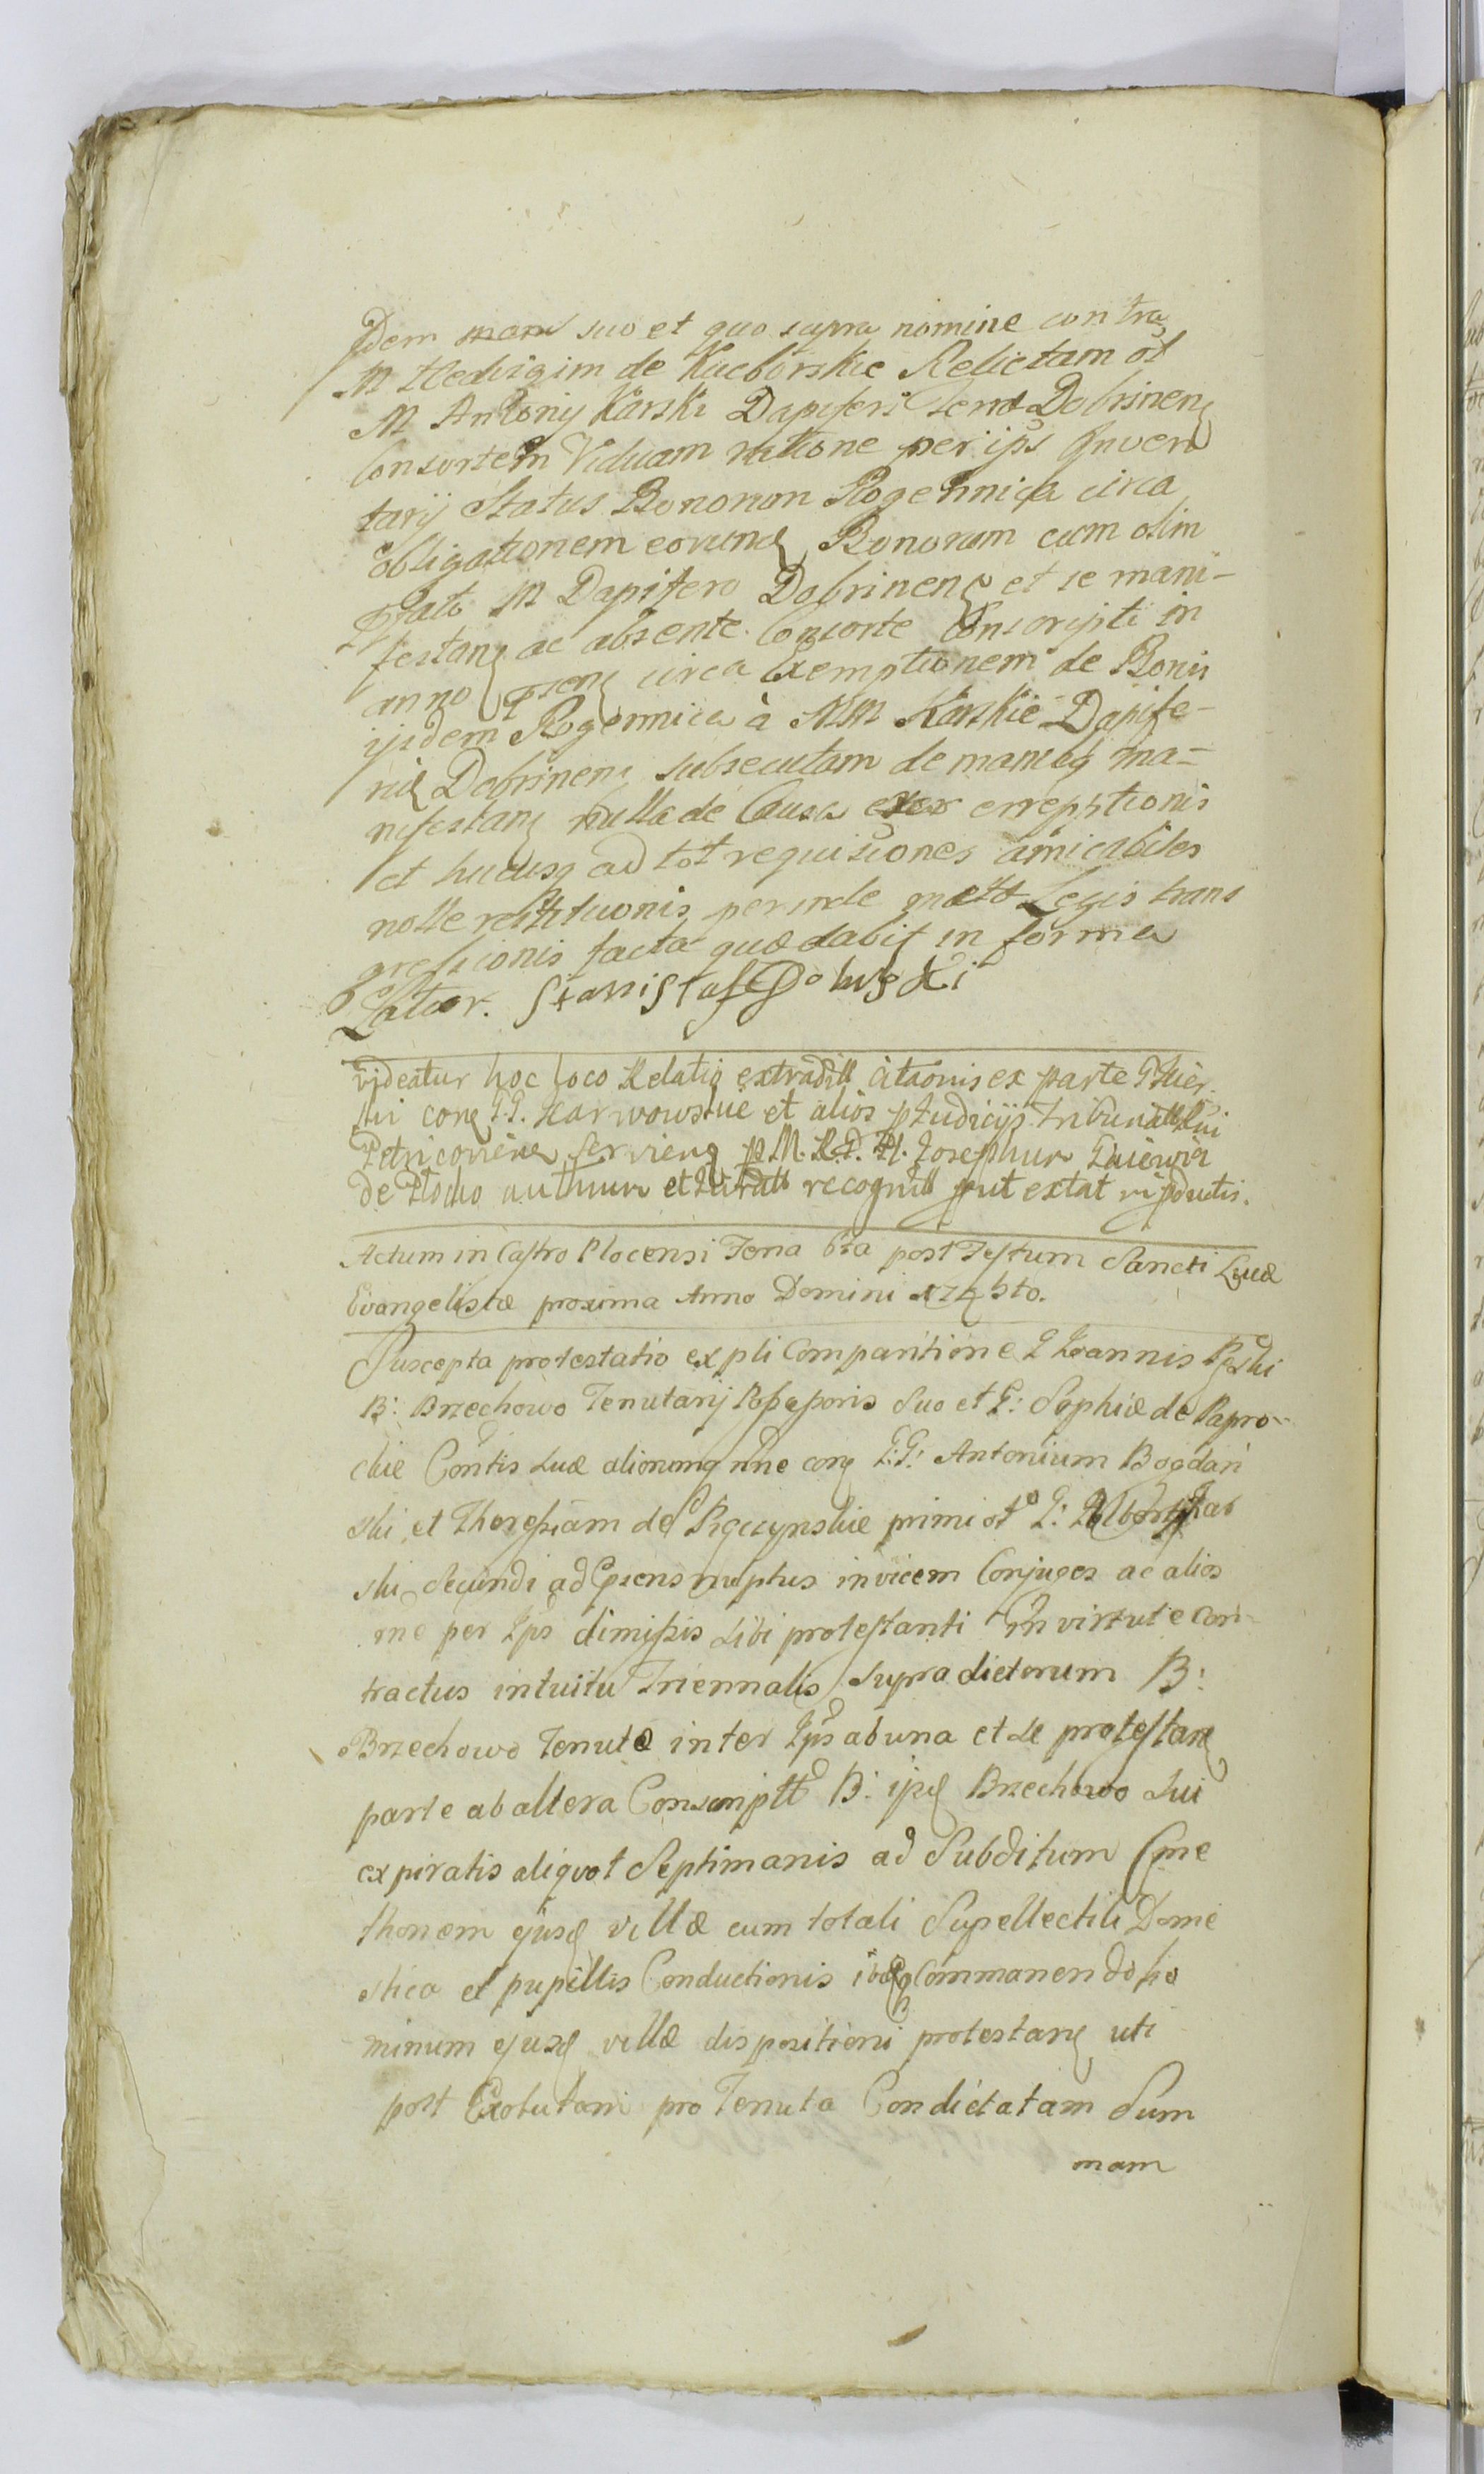 Idem mane suo et quo supra nomine contra
M Hedvigim de Kuclorskie Relictam ol
M Antonij Karski Dapiferi Terræ Dobrinen
Consortem Viduam ratione per ips Inven
tarij Status Bonorum Rogennica circa
obligationem eorund Bonorum cum olim
Pfato M Dapifero Dobrinen et se mani-
festan ac absente Consorte Conscripti in
anno Psen circa Exemptionem de Bonis
ijsdem Rogennica à MM Karskie Dapife-
rid Dobrinen subsecutam de manibq ma-
nifestan nulla de Causa erreptionis
et hucusq ad tot requisiones amicabiles
nolle restitutionis perinde Legis trans
gressionis facta quæ dabit in forma
Lator. Stanisłaf Dołuwski
Videatur hoc loco Relatio extradtt citaonis ex parte G
ski con G.G. Karwowskie et alios p Iudicijs Tribunalttbus Rni
Petricovien Servien p M. R. D. Josephum
de Plocko authum et Juratt recognitt put extat in ductis.
Actum in Castro Plocensi Feria 6ta post Festum Sancti Lucæ
Evangelistæ proxima Anno Domini 1745to.
Suscepta protestatio ex pli Comparitione G Joannis Pęski
B: Brzechowo Tenutarij Poßeßoris Suo et G: Sophiæ de Papro-
ckie Contis suæ aliorumq nne con G:G: Antonium Bogdań
ski et Thereßiam de Pigczynskie primi ol G: Alberti
ski Secundi ad Psens nuptus invicem Conjuges ac alios
rne per Ips dimißis sibi protestanti in virtute con-
tractus intuitu Triennalis supradictorum B:
Brzechowo Tenutæ inter Ips ab una et se protestan
parte ab altera Conscriptt B: ipd Brzechowo sui
expiratis aliquot Septimanis ad Subditum Cme
thonem ejusd villæ cum totali Supellectili Dome
stica et pupillis Conductionis ibdq Commanen do ho
minum ejusd villæ dispositioni protestan uti
post Exolutam pro Tenuta Condictatam Sum
mam